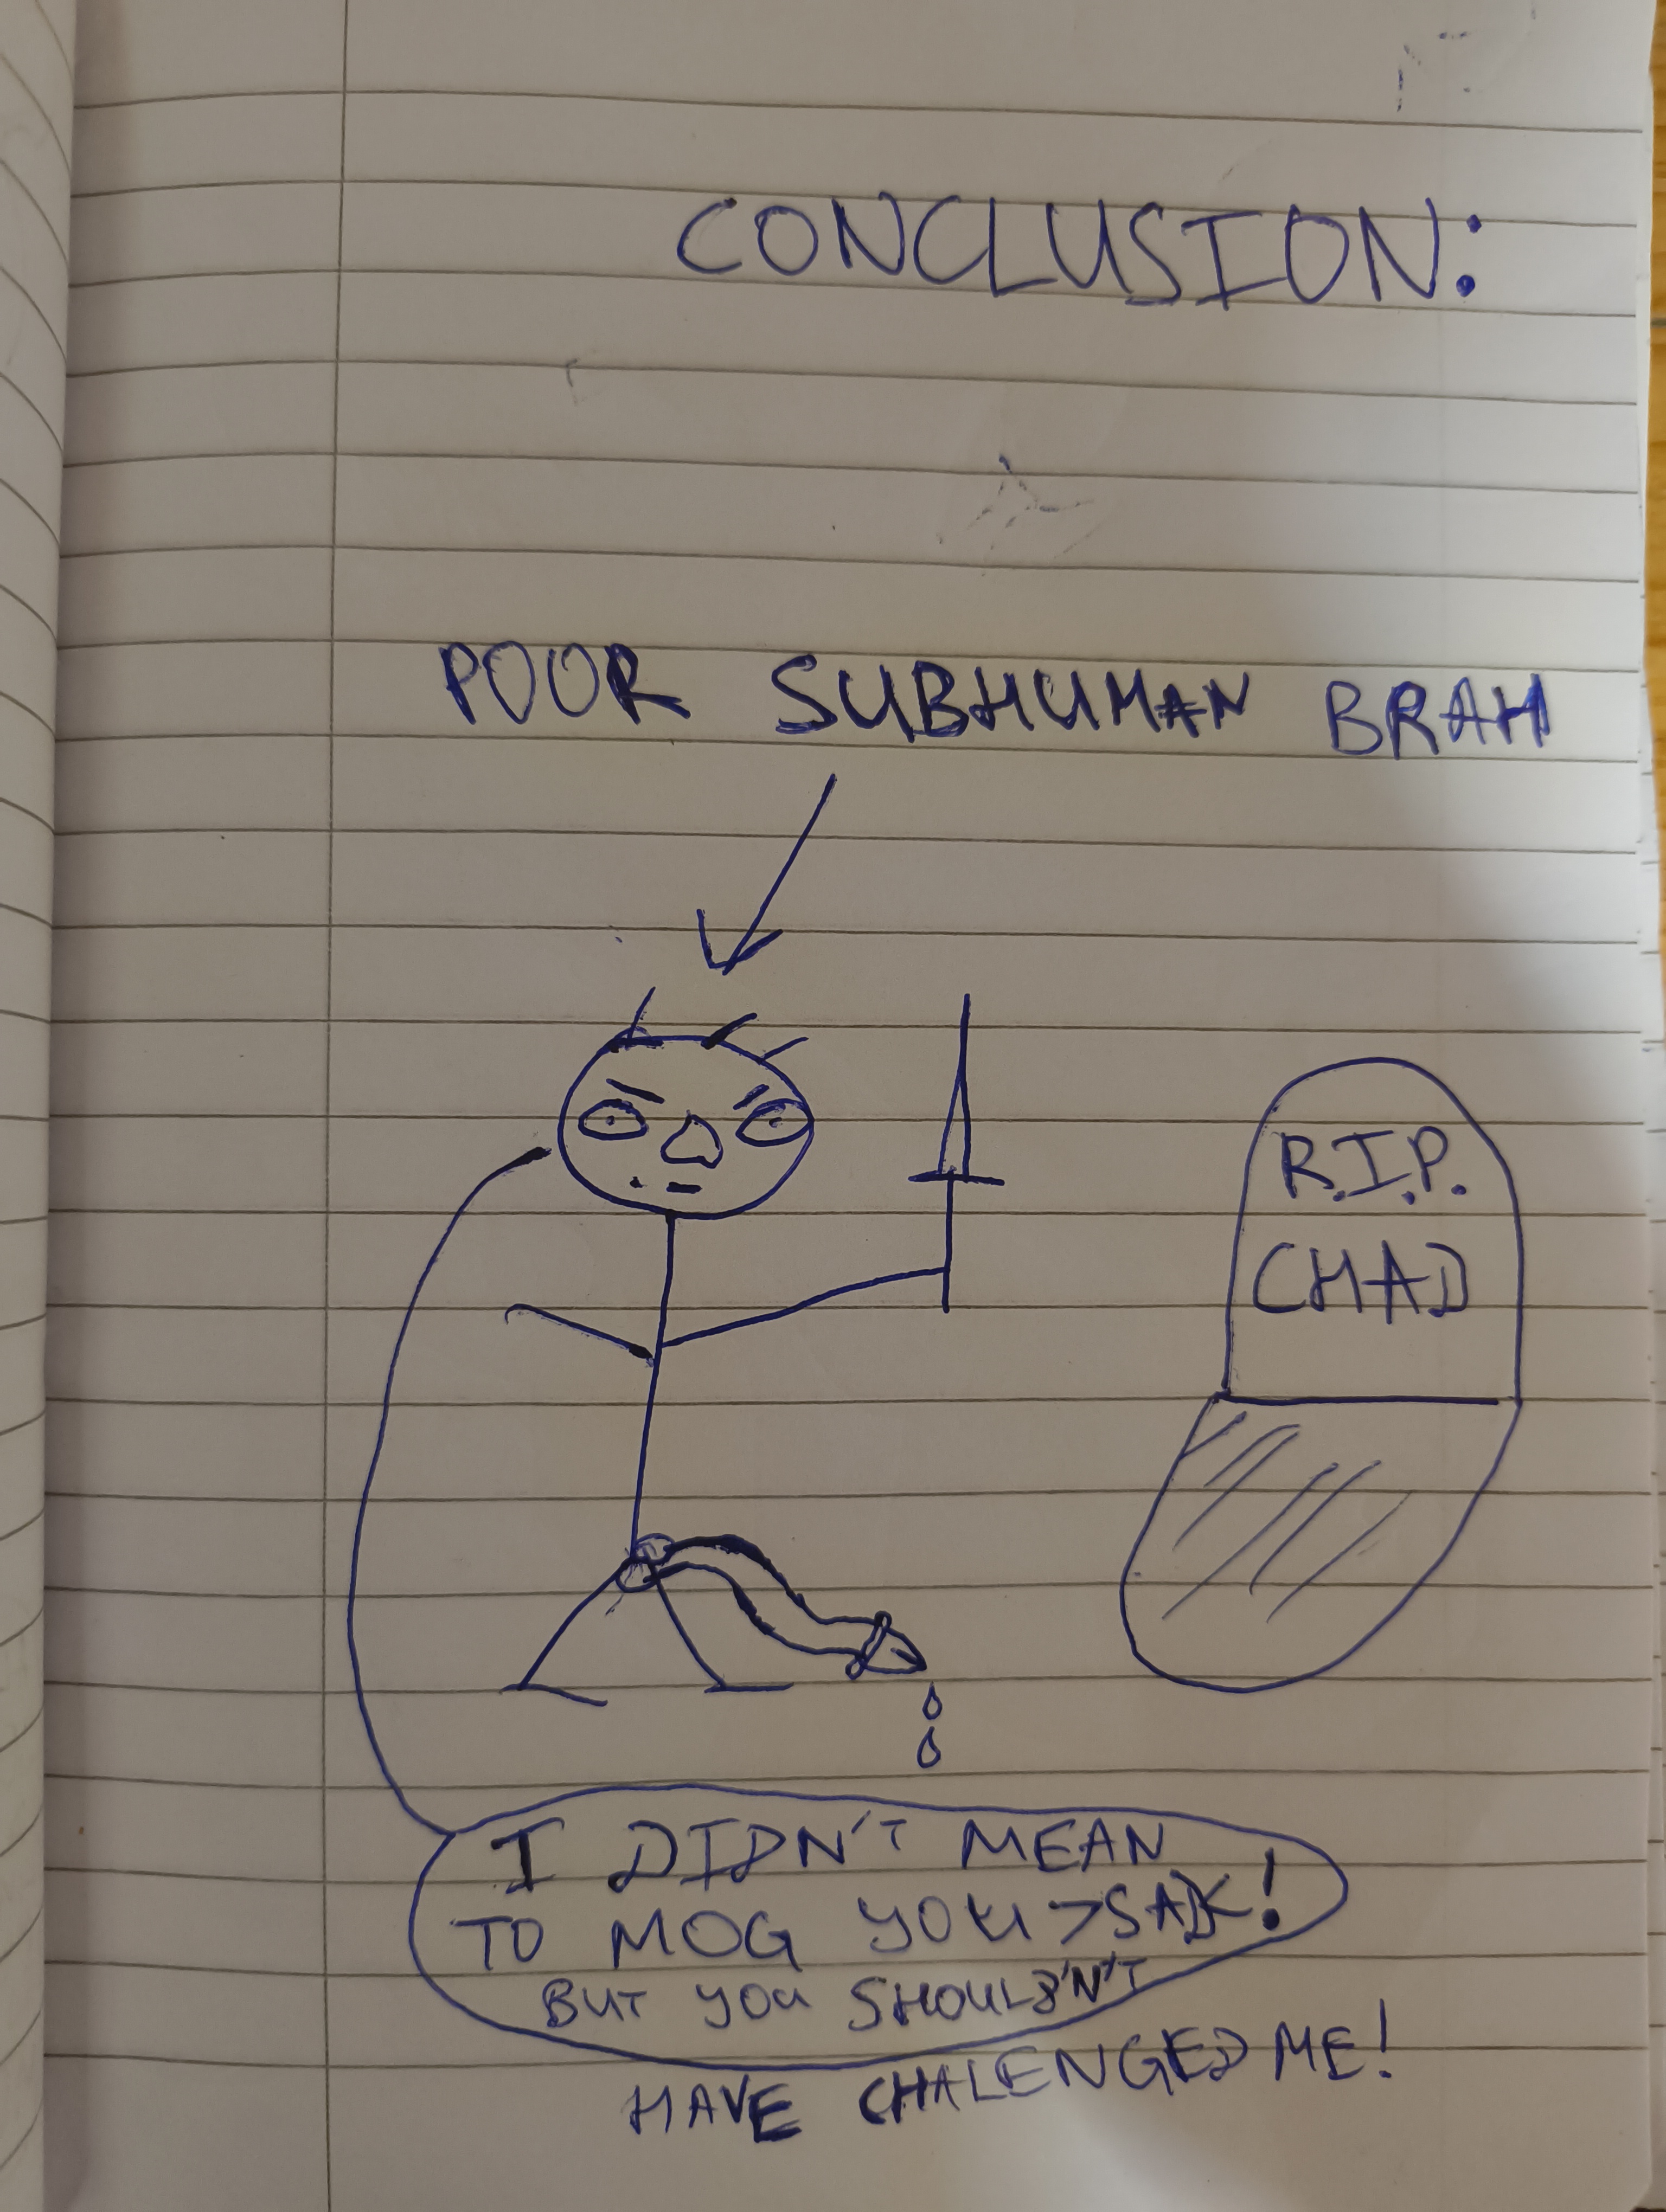 CONCLUSION:
POOR SUBHUMAN BRAH
R.I.P.
CHAD
I DIDN'T MEAN
TO MOG YOU >SADK!
BUT YOU SHOULD'N'T
HAVE CHALENGED ME!